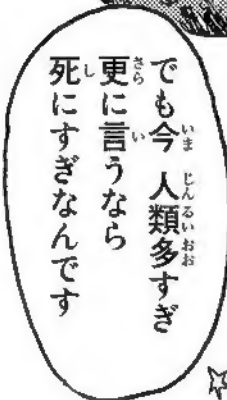 でも今 人類多すぎ
更に言うなら
死にすぎなんです